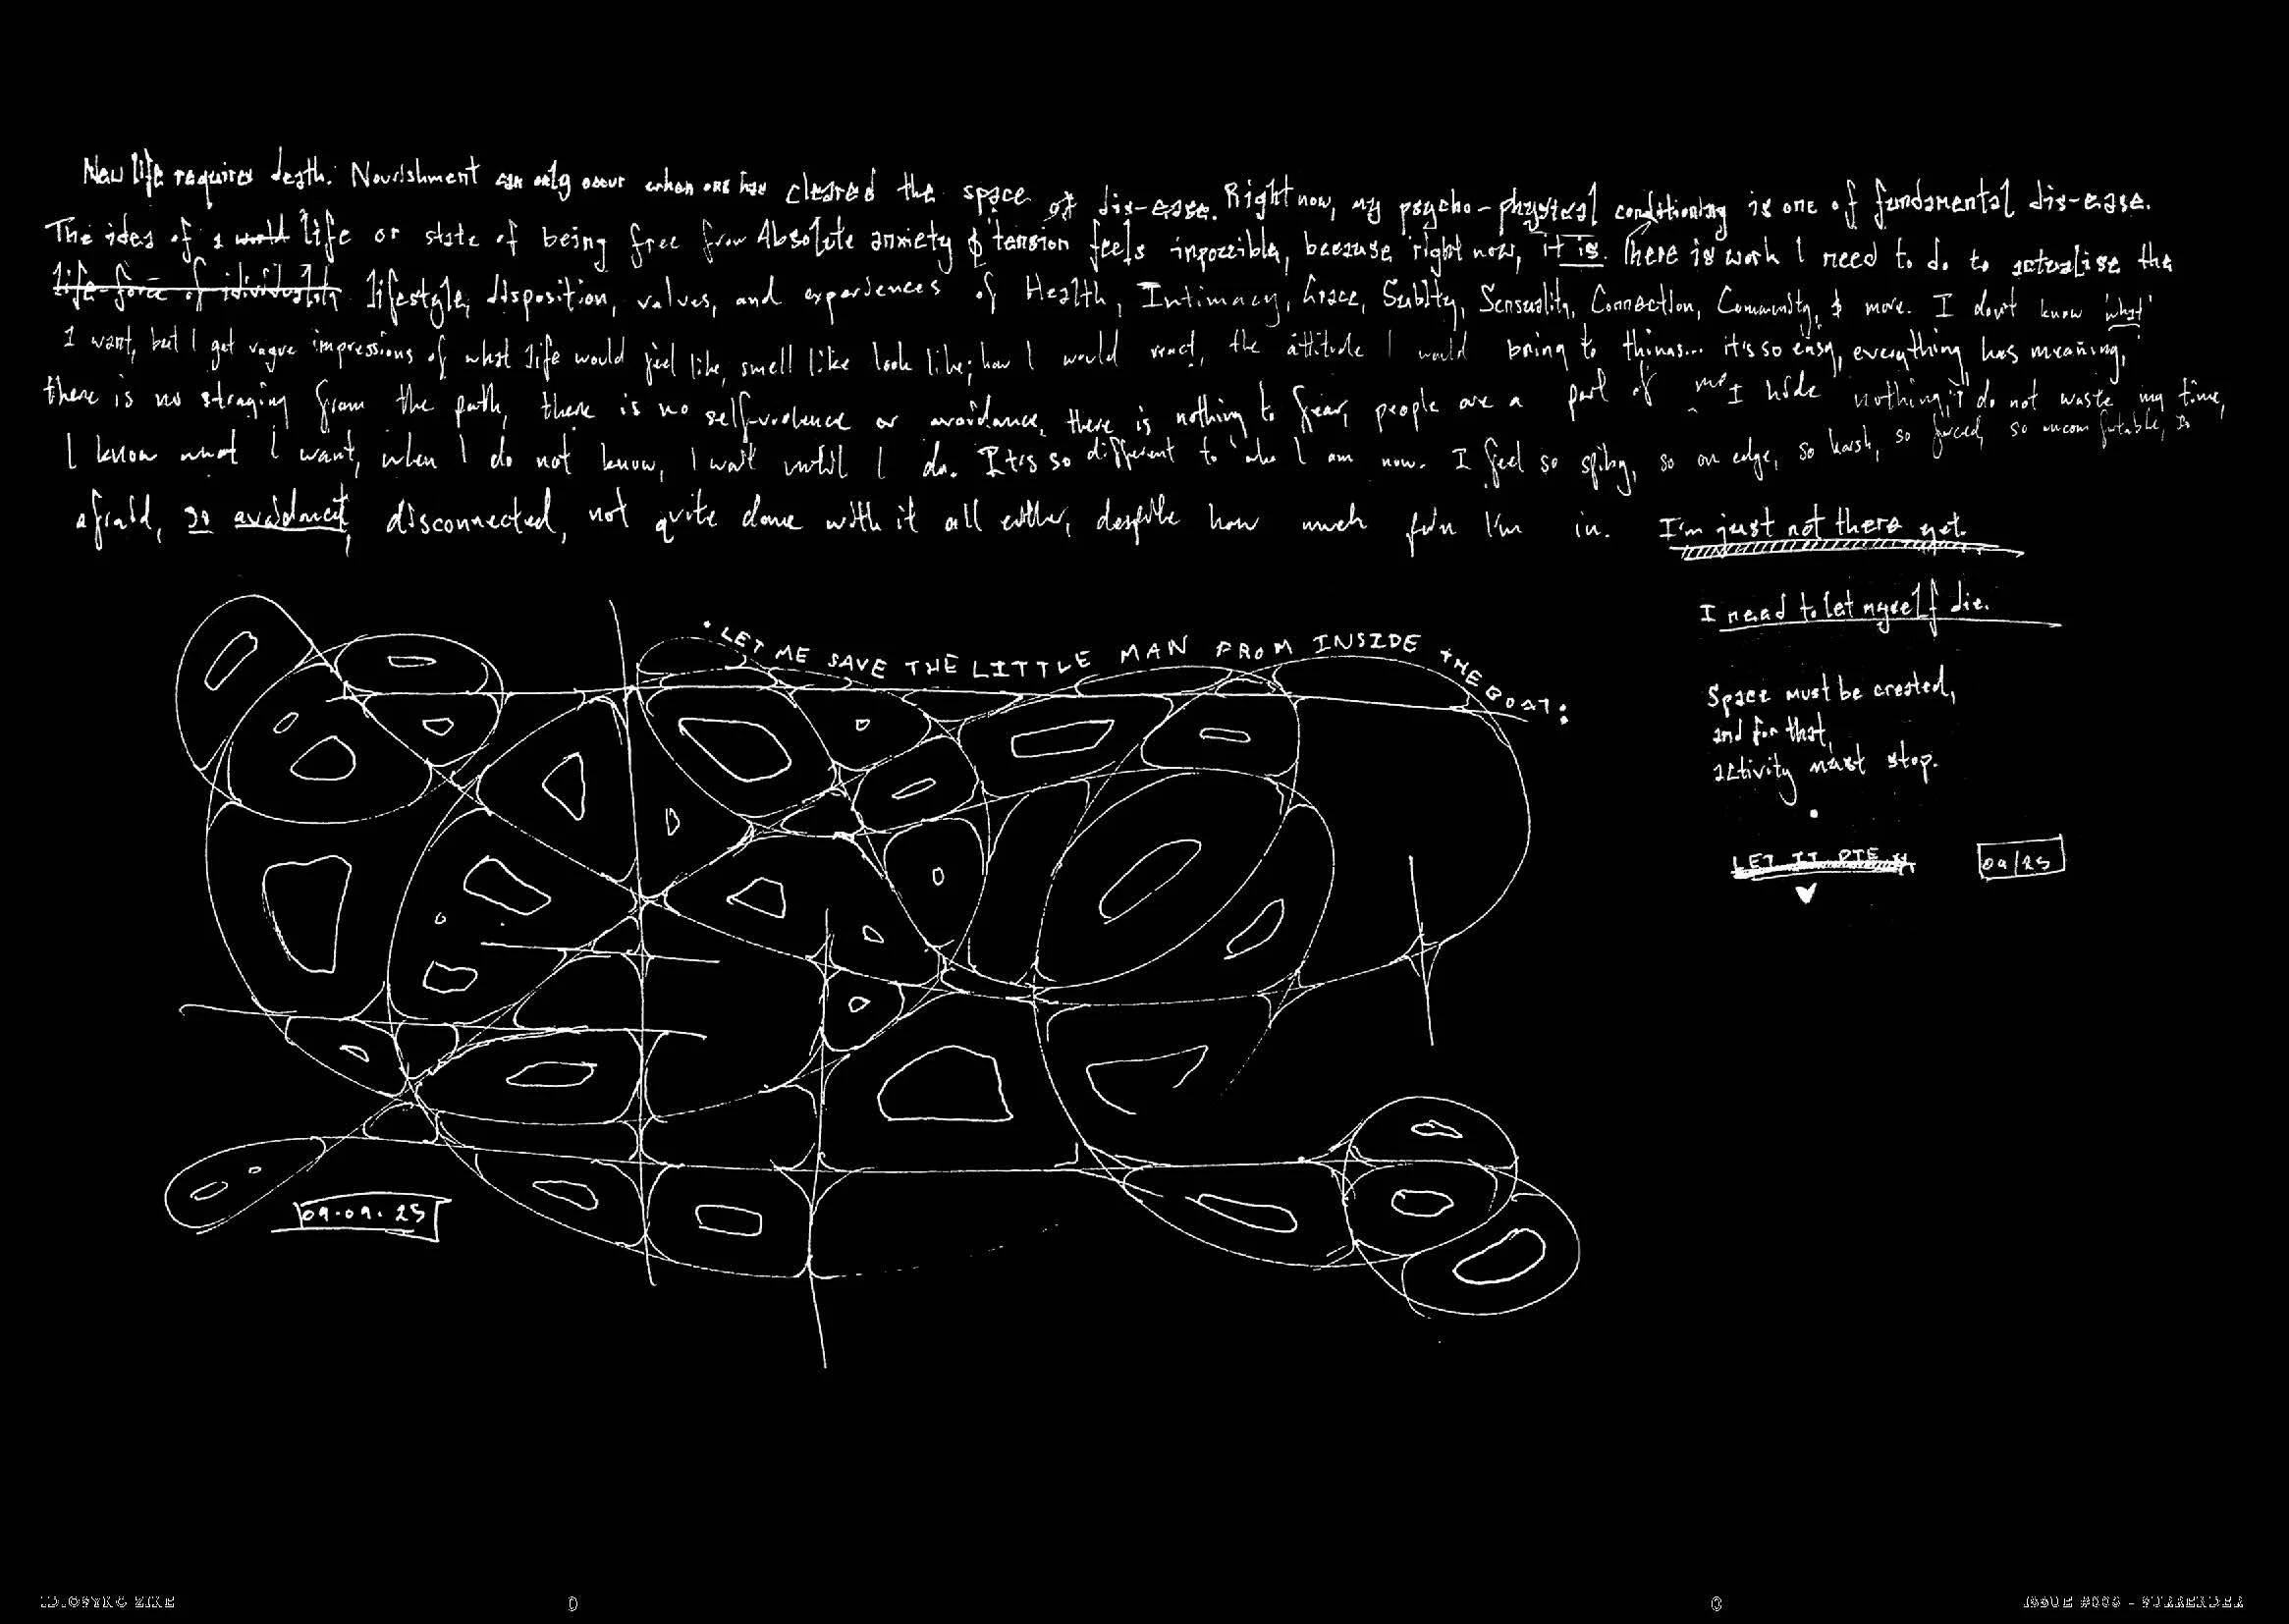 New life requires death. Nourishment can only occur when one has cleared the space of dis-ease. Right now, my psycho-physical conditioning is one of fundamental dis-ease.
The idea of a world life or state of being free from Absolute anxiety & tension feels impossible, because right now, it is. There is work I need to do to actualise the
life-force of lifestyle, disposition, values, and experiences of Health, Intimacy, Grace, Sublty, Sensuality, Connection, Community, & more. I don't know 'what'
I want, but I get vague impressions of what life would feel like, smell like look like; how I would react, the attitude I would bring to things... it's so easy, everything has meaning,
there is no straying from the path, there is no self-violence or avoidance, there is nothing to fear, people are a part of me I hide nothing, I do not waste my time,
I know what I want, when I do not know, I wait until I do. It's so different to who I am now. I feel so spiky, so on edge, so harsh, so forced, so uncomfutable, so
afraid, so avoidant, disconnected, not quite done with it all either, despite how much I'm in. I'm just not there yet.
I need to let myself die.
Space must be created,
and for that,
activity must stop.
LET IT DIE
09/25
• LET ME SAVE THE LITTLE MAN FROM INSIDE THE BOAT:
09.09.25
IDIOSYNC ZINE
ISSUE #006 - SURRENDER